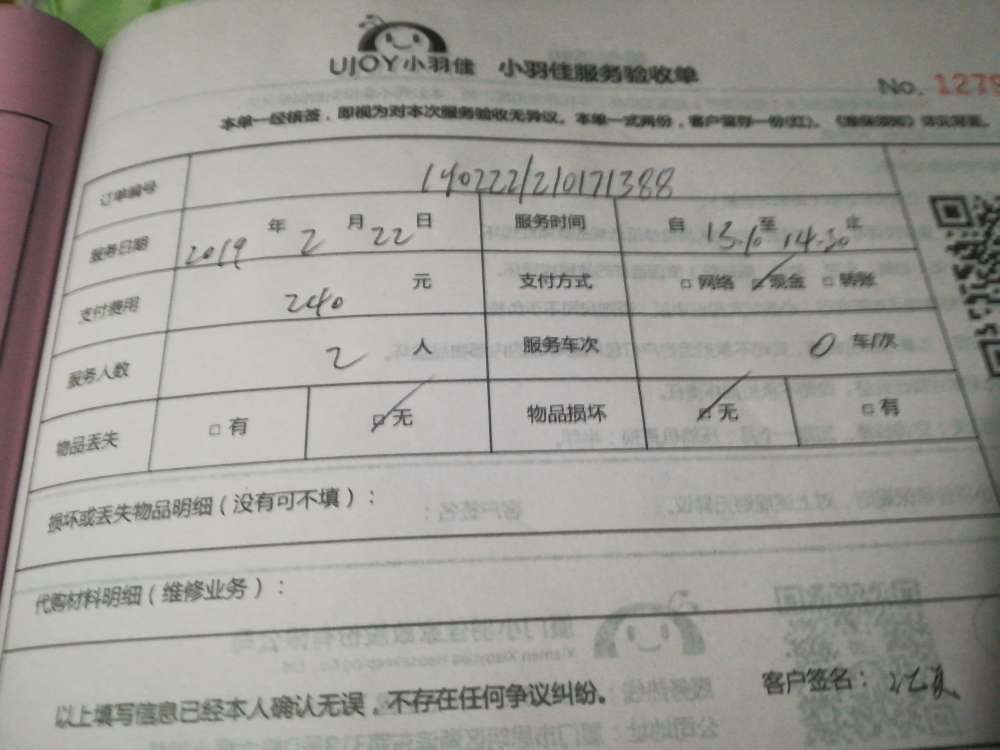 UJOY小羽佳 小羽佳服务验收单
No. 1279
本单一经核签，即视为对本次服务验收无异议。本单一式两份，客户留存一份(红)。
订单编号 140222/210171388
服务日期 2019 年 2 月 22 日 服务时间 自 13.10 至 14.30 止
支付费用 240 元 支付方式 □网络 ☑现金 □转账
服务人数 2 人 服务车次 0 车/次
物品丢失 □有 ☑无 物品损坏 ☑无 □有
损坏或丢失物品明细（没有可不填）：
代购材料明细（维修业务）：
以上填写信息已经本人确认无误，不存在任何争议纠纷。 客户签名：